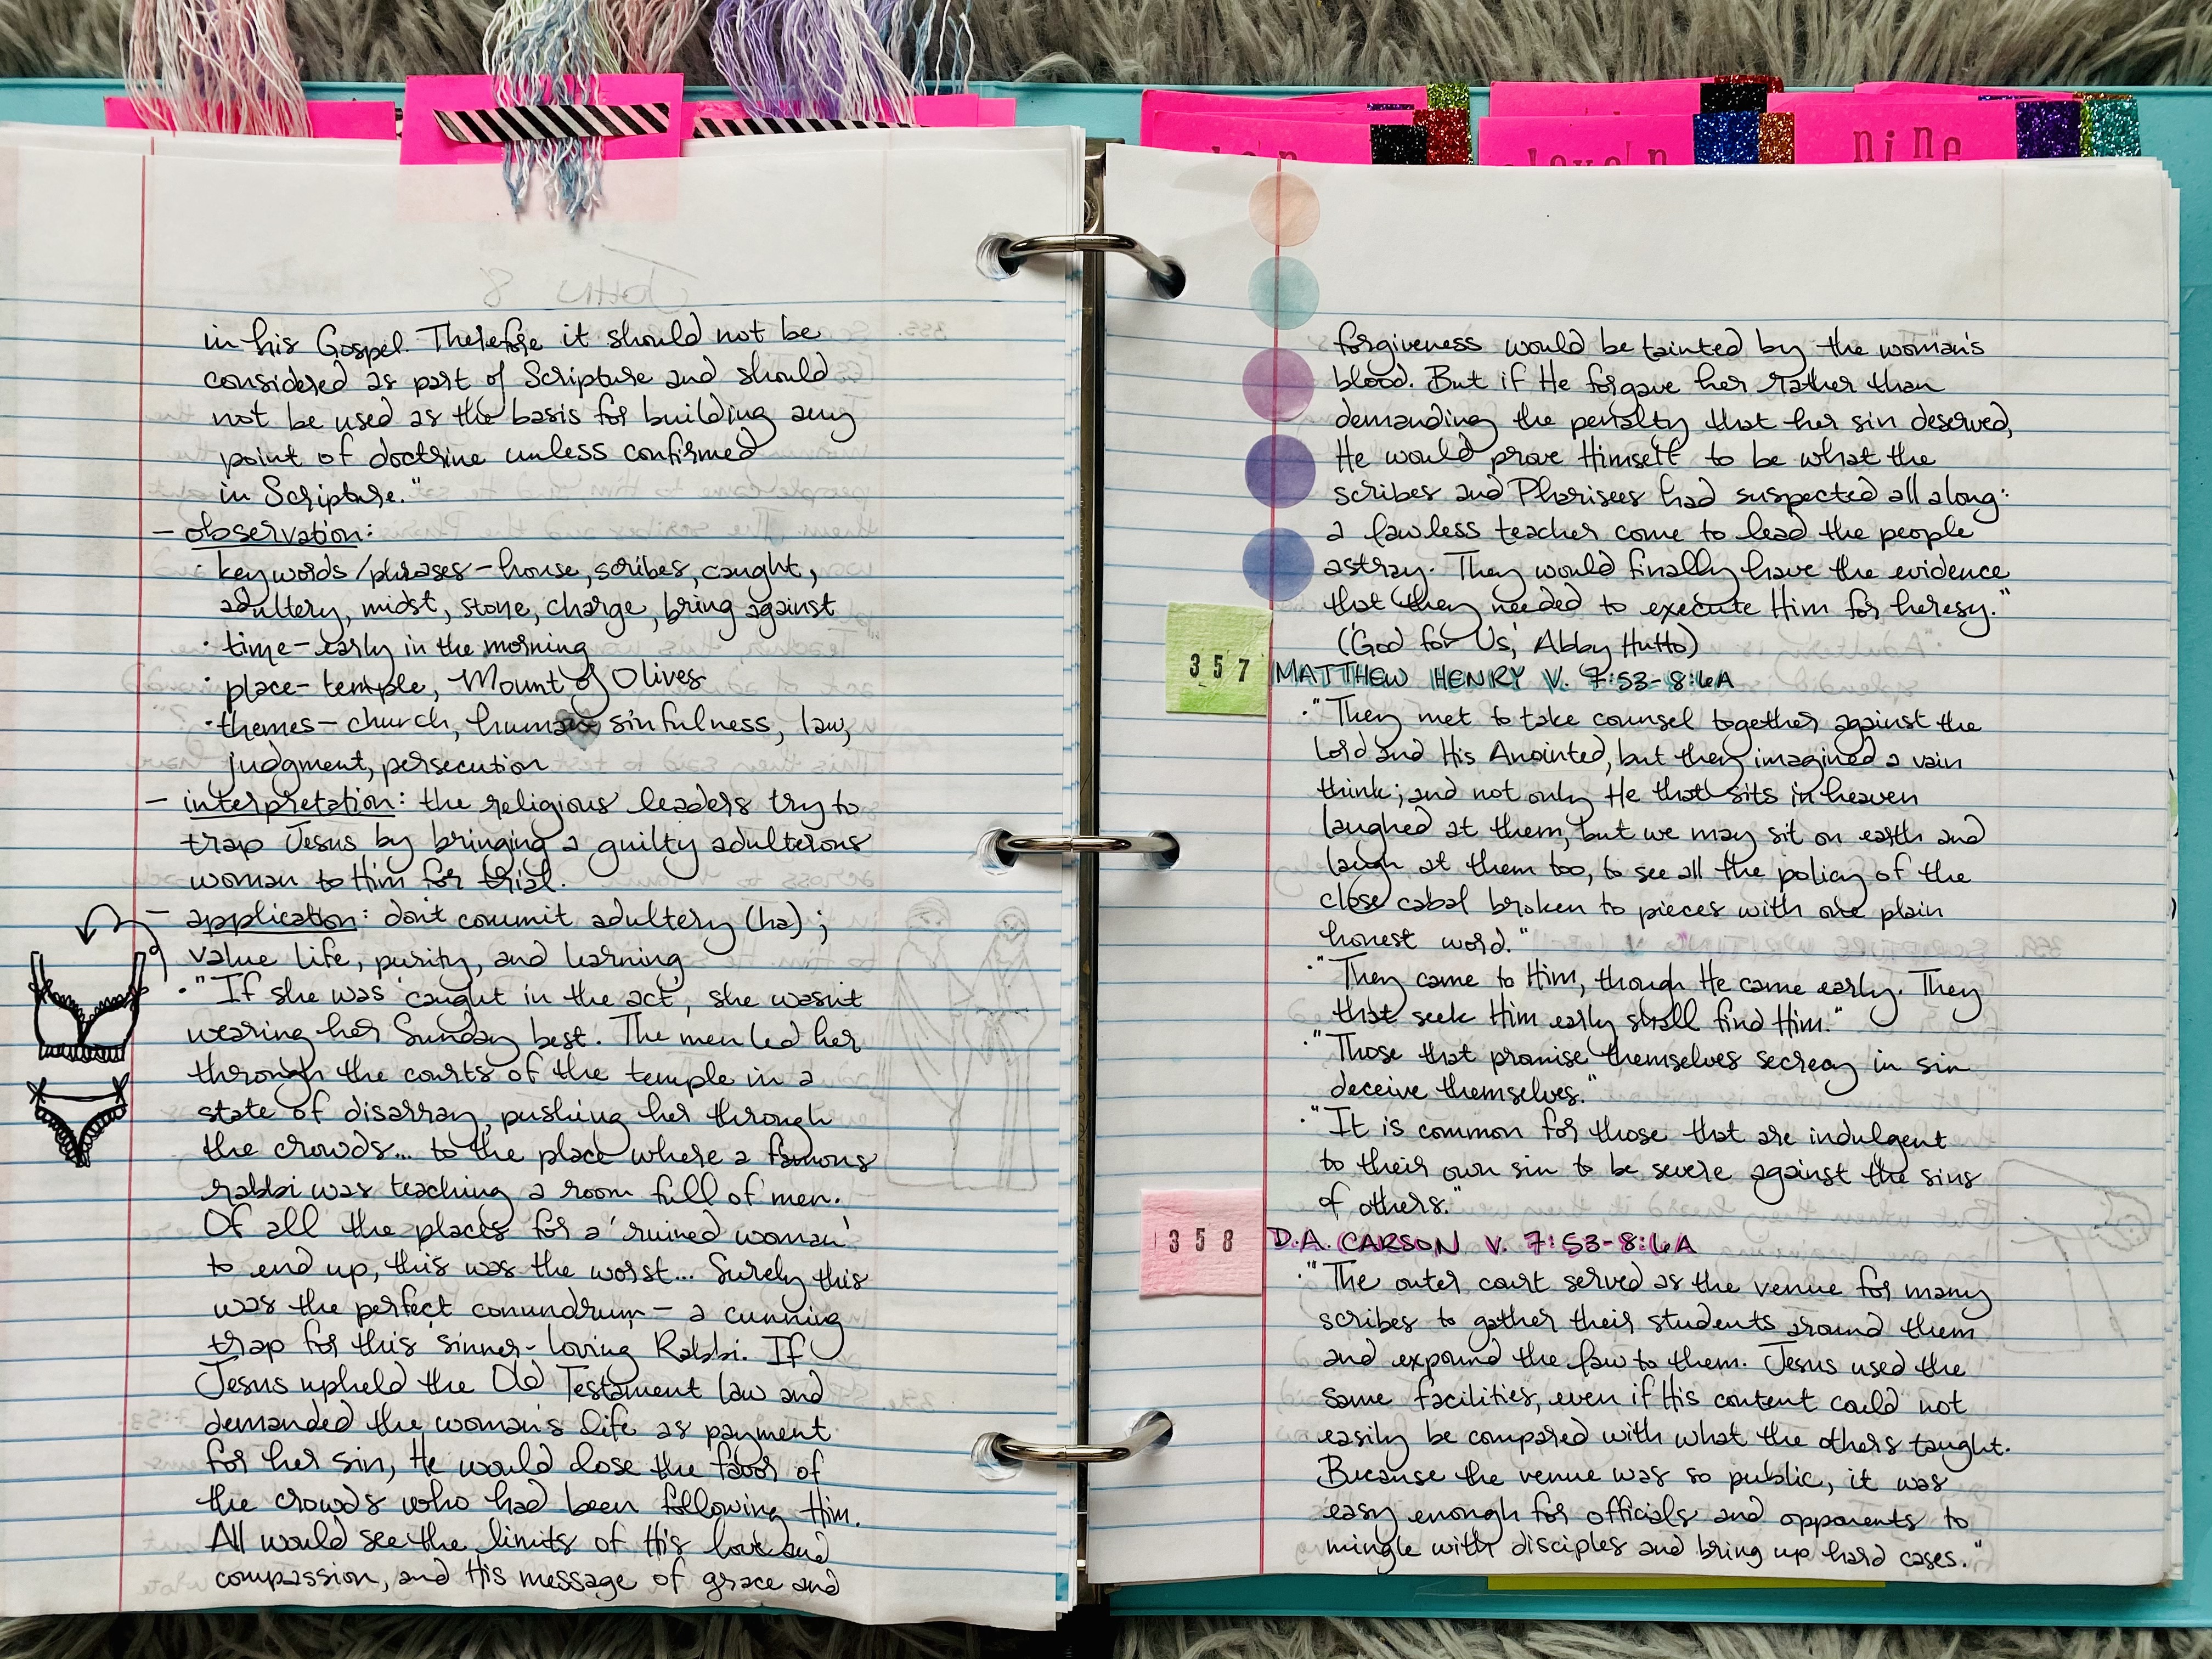 nine
in his Gospel. Therefore it should not be
considered as part of Scripture and should
not be used as the basis for building any
point of doctrine unless confirmed
in Scripture."
- observation:
· keywords/phrases - house, scribes, caught,
adultery, midst, stone, charge, bring against
· time - early in the morning
· place - temple, Mount of Olives
· themes - church, human sinfulness, law,
judgment, persecution
- interpretation: the religious leaders try to
trap Jesus by bringing a guilty adulterous
woman to Him for trial.
- application: don't commit adultery (ha);
value life, purity, and learning
· "If she was 'caught in the act', she wasn't
wearing her Sunday best. The men led her
through the courts of the temple in a
state of disarray, pushing her through
the crowds... to the place where a famous
rabbi was teaching a room full of men.
Of all the places for a 'ruined woman'
to end up, this was the worst... Surely this
was the perfect conundrum - a cunning
trap for this sinner-loving Rabbi. If
Jesus upheld the Old Testament law and
demanded the woman's life as payment
for her sin, He would lose the favor of
the crowds who had been following Him.
All would see the limits of His love and
compassion, and His message of grace and
forgiveness would be tainted by the woman's
blood. But if He forgave her rather than
demanding the penalty that her sin deserved,
He would prove Himself to be what the
scribes and Pharisees had suspected all along:
a lawless teacher come to lead the people
astray. They would finally have the evidence
that they needed to execute Him for heresy."
('God for Us', Abby Hutto)
357 MATTHEW HENRY V. 7:53-8:6A
· "They met to take counsel together against the
Lord and His Anointed, but they imagined a vain
think; and not only He that sits in heaven
laughed at them, but we may sit on earth and
laugh at them too, to see all the policy of the
close cabal broken to pieces with one plain
honest word."
· "They came to Him, though He came early. They
that seek Him early shall find Him."
· "Those that promise themselves secrecy in sin
deceive themselves."
· "It is common for those that are indulgent
to their own sin to be severe against the sins
of others."
358 D.A. CARSON V. 7:53-8:6A
· "The outer court served as the venue for many
scribes to gather their students around them
and expound the law to them. Jesus used the
same facilities, even if His content could not
easily be compared with what the others taught.
Because the venue was so public, it was
easy enough for officials and opponents to
mingle with disciples and bring up hard cases."